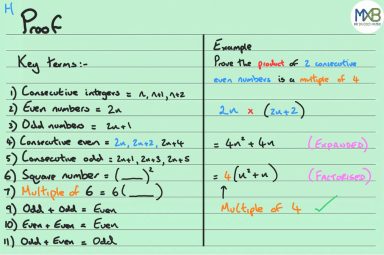 H
Proof
MXB
Key terms:-
1) Consecutive integers = n, n+1, n+2
2) Even numbers = 2n
3) Odd numbers = 2n+1
4) Consecutive even = 2n, 2n+2, 2n+4
5) Consecutive odd = 2n+1, 2n+3, 2n+5
6) Square number = (___)²
7) Multiple of 6 = 6(___)
9) Odd + Odd = Even
10) Even + Even = Even
11) Odd + Even = Odd
Example
Prove the product of 2 consecutive
even numbers is a multiple of 4
2n × (2n+2)
= 4n² + 4n (EXPANDED)
= 4(n² + n) (FACTORISED)
↑
Multiple of 4 ✓